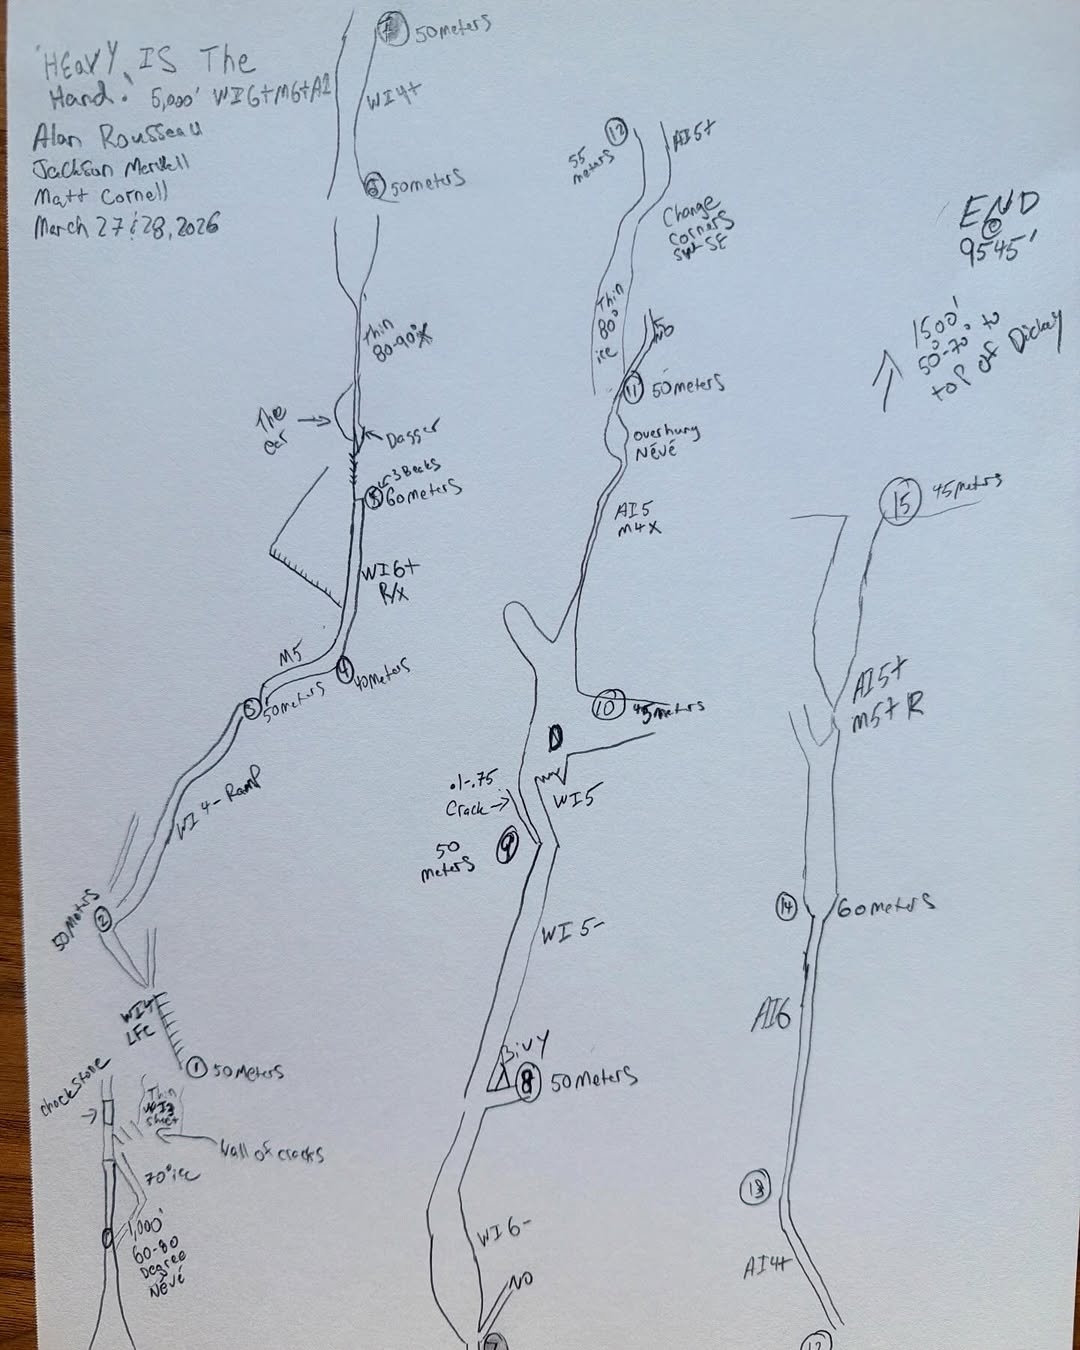 'HEavy IS The
Hand.' 5,000' WI6+M6+AI
Alan Rousseau
Jackson Marvell
Matt Cornell
March 27 & 28, 2026
50 meters
WI4+
6
50 meters
Thin
80-90° X
The
ear
Dagger
3 Beaks
5
60 meters
WI6+
R/X
M5
4
40 meters
3
50 meters
WI 4- Ramp
50 Meters
2
WI4
1
50 meters
chockstone
Thin
WI3
sheet
Wall of cracks
70° ice
1,000'
60-80
Degree
Névé
12
55
meters
AI5+
Change
corners
Thin
80°
ice
NO
11
50 meters
overhung
Névé
AI5
M4X
10
45 meters
.1-.75
Crack
WI5
9
50
meters
WI 5-
Bivy
8
50 meters
WI6-
NO
7
END
@
9545'
1500'
50°-70° to
top of Dickey
15
45 meters
AI5+
M5+ R
14
60 meters
AI6
13
AI4+
12